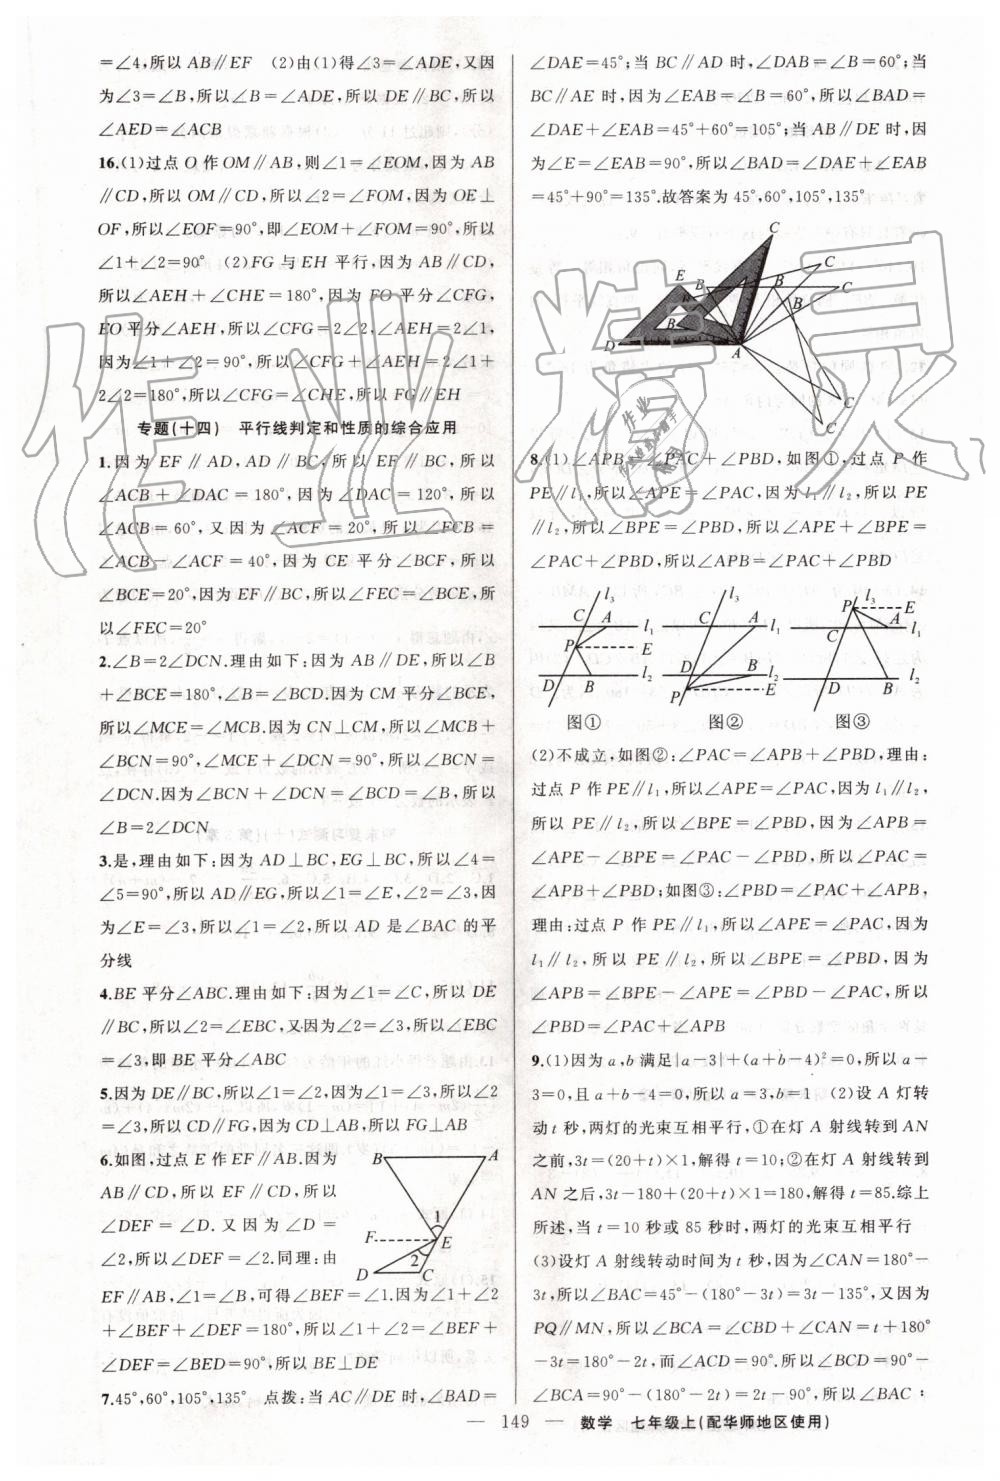 =∠4,所以 AB∥EF　(2)由(1)得∠3=∠ADE,又因
为∠3=∠B,所以∠B=∠ADE,所以 DE∥BC,所以
∠AED=∠ACB
16.(1)过点 O 作 OM∥AB,则∠1=∠EOM,因为 AB
∥CD,所以 OM∥CD,所以∠2=∠FOM,因为 OE⊥
OF,所以∠EOF=90°,即∠EOM+∠FOM=90°,所以
∠1+∠2=90°　(2)FG 与 EH 平行,因为 AB∥CD,
所以∠AEH+∠CHE=180°,因为 FO 平分∠CFG,
EO 平分∠AEH,所以∠CFG=2∠2,∠AEH=2∠1,
因为∠1+∠2=90°,所以∠CFG+∠AEH=2∠1+
2∠2=180°,所以∠CFG=∠CHE,所以 FG∥EH
专题(十四)　平行线判定和性质的综合应用
1.因为 EF∥AD,AD∥BC,所以 EF∥BC,所以
∠ACB+∠DAC=180°,因为∠DAC=120°,所以
∠ACB=60°,又因为∠ACF=20°,所以∠FCB=
∠ACB-∠ACF=40°,因为 CE 平分∠BCF,所以
∠BCE=20°,因为 EF∥BC,所以∠FEC=∠BCE,所
以∠FEC=20°
2.∠B=2∠DCN.理由如下:因为 AB∥DE,所以∠B
+∠BCE=180°,∠B=∠BCD.因为 CM 平分∠BCE,
所以∠MCE=∠MCB.因为 CN⊥CM,所以∠MCB+
∠BCN=90°,∠MCE+∠DCN=90°,所以∠BCN=
∠DCN.因为∠BCN+∠DCN=∠BCD=∠B,所以
∠B=2∠DCN
3.是,理由如下:因为 AD⊥BC,EG⊥BC,所以∠4=
∠5=90°,所以 AD∥EG,所以∠1=∠E,∠2=∠3,因
为∠E=∠3,所以∠1=∠2,所以 AD 是∠BAC 的平
分线
4.BE 平分∠ABC.理由如下:因为∠1=∠C,所以 DE
∥BC,所以∠2=∠EBC,又因为∠2=∠3,所以∠EBC
=∠3,即 BE 平分∠ABC
5.因为 DE∥BC,所以∠1=∠2,因为∠1=∠3,所以∠2
=∠3,所以 CD∥FG,因为 CD⊥AB,所以 FG⊥AB
6.如图,过点 E 作 EF∥AB.因为
AB∥CD,所以 EF∥CD,所以
∠DEF=∠D.又因为∠D=
∠2,所以∠DEF=∠2.同理:由
EF∥AB,∠1=∠B,可得∠BEF=∠1.因为∠1+∠2
+∠BEF+∠DEF=180°,所以∠1+∠2=∠BEF+
∠DEF=∠BED=90°,所以 BE⊥DE
B A
1
F E
2
D C
7.45°,60°,105°,135°　点拨:当 AC∥DE 时,∠BAD=
∠DAE=45°;当 BC∥AD 时,∠DAB=∠B=60°;当
BC∥AE 时,因为∠EAB=∠B=60°,所以∠BAD=
∠DAE+∠EAB=45°+60°=105°;当 AB∥DE 时,因
为∠E=∠EAB=90°,所以∠BAD=∠DAE+∠EAB
=45°+90°=135°.故答案为 45°,60°,105°,135°
C
E C
B B C
B
B
D A
C
C
8.(1)∠APB=∠PAC+∠PBD,如图①,过点 P 作
PE∥l₁,所以∠APE=∠PAC,因为 l₁∥l₂,所以 PE
∥l₂,所以∠BPE=∠PBD,所以∠APE+∠BPE=
∠PAC+∠PBD,所以∠APB=∠PAC+∠PBD
l₃ C A l₁ P E D B l₂
图①
l₃ C A l₁ D B l₂ P E
图②
l₃ P E C A l₁ D B l₂
图③
(2)不成立,如图②:∠PAC=∠APB+∠PBD,理由:
过点 P 作 PE∥l₁,所以∠APE=∠PAC,因为 l₁∥l₂,
所以 PE∥l₂,所以∠BPE=∠PBD,因为∠APB=
∠APE-∠BPE=∠PAC-∠PBD,所以∠PAC=
∠APB+∠PBD;如图③:∠PBD=∠PAC+∠APB,
理由:过点 P 作 PE∥l₁,所以∠APE=∠PAC,因为
l₁∥l₂,所以 PE∥l₂,所以∠BPE=∠PBD,因为
∠APB=∠BPE-∠APE=∠PBD-∠PAC,所以
∠PBD=∠PAC+∠APB
9.(1)因为 a,b 满足|a-3|+(a+b-4)²=0,所以 a-
3=0,且 a+b-4=0,所以 a=3,b=1　(2)设 A 灯转
动 t 秒,两灯的光束互相平行,①在灯 A 射线转到 AN
之前,3t=(20+t)×1,解得 t=10;②在灯 A 射线转到
AN 之后,3t-180+(20+t)×1=180,解得 t=85.综上
所述,当 t=10 秒或 85 秒时,两灯的光束互相平行
(3)设灯 A 射线转动时间为 t 秒,因为∠CAN=180°-
3t,所以∠BAC=45°-(180°-3t)=3t-135°,又因为
PQ∥MN,所以∠BCA=∠CBD+∠CAN=t+180°
-3t=180°-2t,而∠ACD=90°.所以∠BCD=90°-
∠BCA=90°-(180°-2t)=2t-90°,所以∠BAC:
— 149 —　数学　七年级上(配华师地区使用)
作业精灵